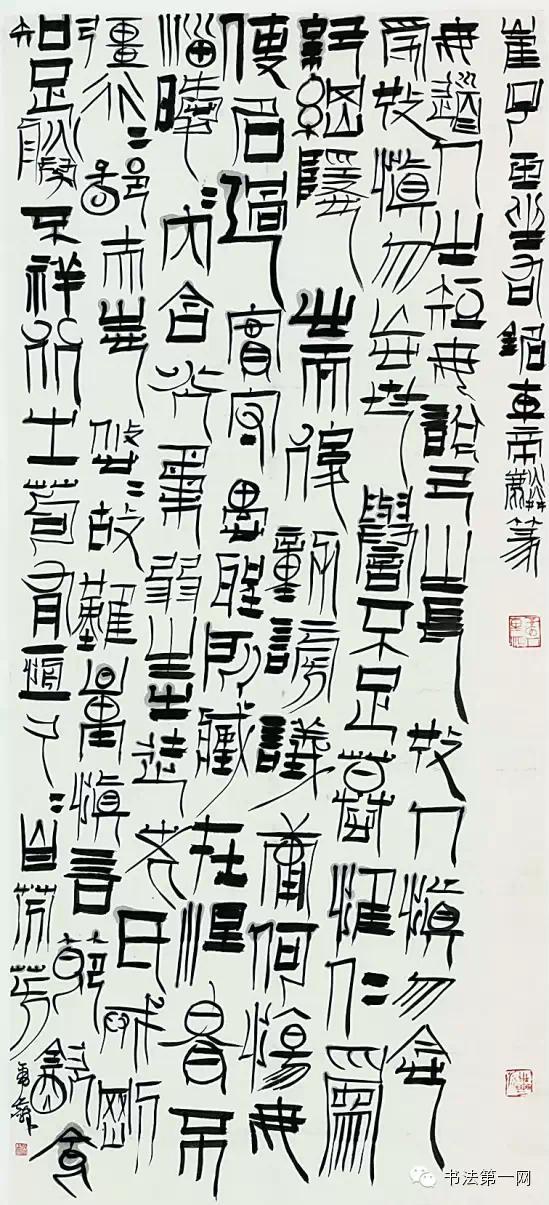 崔子玉坐右銘
篆
毋道人之短毋說己之長施人慎勿念
受施慎勿忘世譽不足慕惟仁為
紀綱隱心而後動謗議庸何傷毋
使名過實守愚聖所臧在涅貴不
淄曖〻內含光柔弱生之徒老氏戒剛
彊行〻鄙夫志悠〻故難量慎言節飲食
知足勝不祥行之苟有恆久〻自芬芳
书法第一网